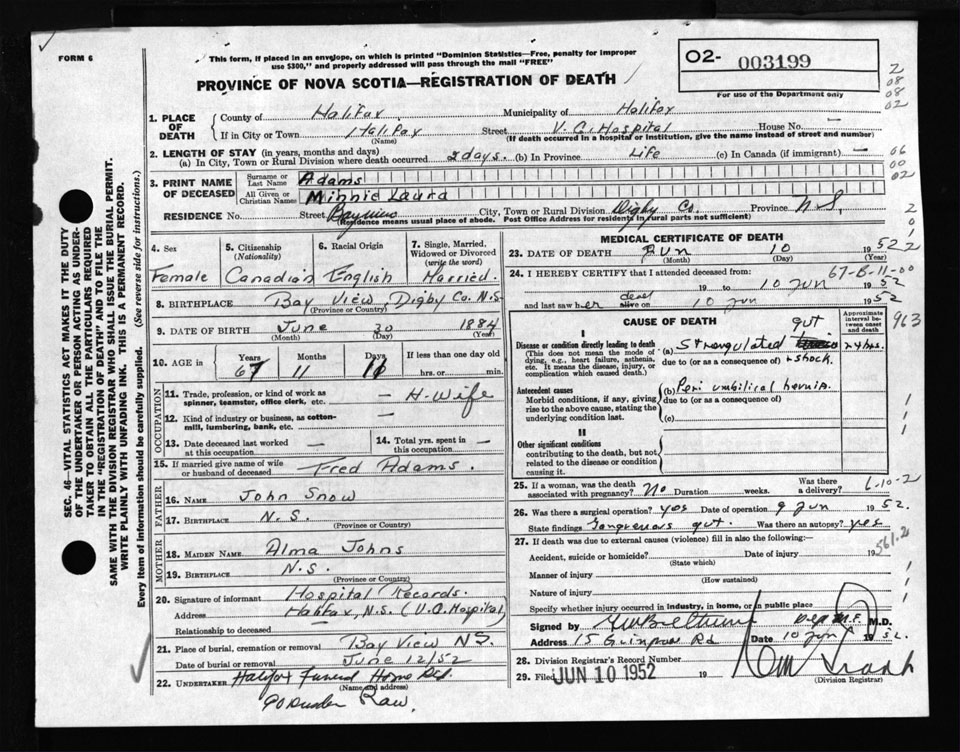 FORM 6
This form, if placed in an envelope, on which is printed "Dominion Statistics—Free, penalty for improper
use $300," and properly addressed will pass through the mail "FREE"
PROVINCE OF NOVA SCOTIA—REGISTRATION OF DEATH
O2- 003199
For use of the Department only
2
08
08
02
1. PLACE OF DEATH
County of Halifax Municipality of Halifax
If in City or Town Halifax Street V. G. Hospital House No. —
(Name) (If death occurred in a hospital or institution, give the name instead of street and number)
2. LENGTH OF STAY (in years, months and days)
(a) In City, Town or Rural Division where death occurred 2 days. (b) In Province Life (c) In Canada (if immigrant) —
06
00
02
3. PRINT NAME OF DECEASED
Surname or Last Name Adams
All Given or Christian Names Minnie Laura
RESIDENCE No. Street Bayview City, Town or Rural Division Digby Co. Province N.S.
(Residence means usual place of abode. Post Office Address for residents in rural parts not sufficient)
4. Sex Female
5. Citizenship (Nationality) Canadian
6. Racial Origin English
7. Single, Married, Widowed or Divorced (write the word) Married.
8. BIRTHPLACE Bay View, Digby Co. N.S.
(Province or Country)
9. DATE OF BIRTH June 30 1884
(Month) (Day) (Year)
10. AGE in Years Months Days If less than one day old
67 11 11 hrs. or min.
OCCUPATION
11. Trade, profession, or kind of work as
spinner, teamster, office clerk, etc. — H-Wife
12. Kind of industry or business, as cotton-
mill, lumbering, bank, etc. —
13. Date deceased last worked
at this occupation —
14. Total yrs. spent in
this occupation —
15. If married give name of wife
or husband of deceased Fred Adams.
FATHER
16. NAME John Snow
17. BIRTHPLACE N. S.
(Province or Country)
MOTHER
18. MAIDEN NAME Alma Johns
19. BIRTHPLACE N.S.
(Province or Country)
20. Signature of informant Hospital Records.
Address Halifax, N.S. (V.G. Hospital)
Relationship to deceased —
21. Place of burial, cremation or removal Bay View NS.
Date of burial or removal June 12/52
22. UNDERTAKER Halifax Funeral Home
(Name and address)
MEDICAL CERTIFICATE OF DEATH
23. DATE OF DEATH Jun 10 1952
(Month) (Day) (Year)
24. I HEREBY CERTIFY that I attended deceased from: 67-B-11-00
19 to 10 Jun 1952
and last saw her dead alive on 10 Jun 1952
CAUSE OF DEATH
Approximate interval between onset and death
963
I
Disease or condition directly leading to death
(This does not mean the mode of
dying, e.g., heart failure, asthenia,
etc. It means the disease, injury, or
complication which caused death.)
(a) Strangulated gut 24 hrs.
due to (or as a consequence of) + shock.
Antecedent causes
Morbid conditions, if any, giving
rise to the above cause, stating the
underlying condition last.
(b) Peri umbilical hernia.
due to (or as a consequence of)
(c)
II
Other significant conditions
contributing to the death, but not
related to the disease or condition
causing it.
25. If a woman, was the death
associated with pregnancy? No Duration weeks. Was there a delivery?
6-10-2
26. Was there surgical operation? yes Date of operation 9 Jun 1952.
State findings Gangrenous gut. Was there an autopsy? yes
27. If death was due to external causes (violence) fill in also the following:—
Accident, suicide or homicide? Date of injury 19
(State which)
561.2
Manner of injury
(How sustained)
Nature of injury
Specify whether injury occurred in industry, in home, or in public place
Signed by M.D.
Address 15 Rd Date 10 Jun 1952.
28. Division Registrar's Record Number
29. Filed JUN 10 1952 19
(Division Registrar)
SEC. 46—VITAL STATISTICS ACT MAKES IT THE DUTY
OF THE UNDERTAKER OR PERSON ACTING AS UNDER-
TAKER TO OBTAIN ALL THE PARTICULARS REQUIRED
IN THE "REGISTRATION OF DEATH" AND TO FILE THE
SAME WITH THE DIVISION REGISTRAR WHO SHALL ISSUE THE BURIAL PERMIT.
WRITE PLAINLY WITH UNFADING INK. THIS IS A PERMANENT RECORD.
Every item of information should be carefully supplied. (See reverse side for instructions.)